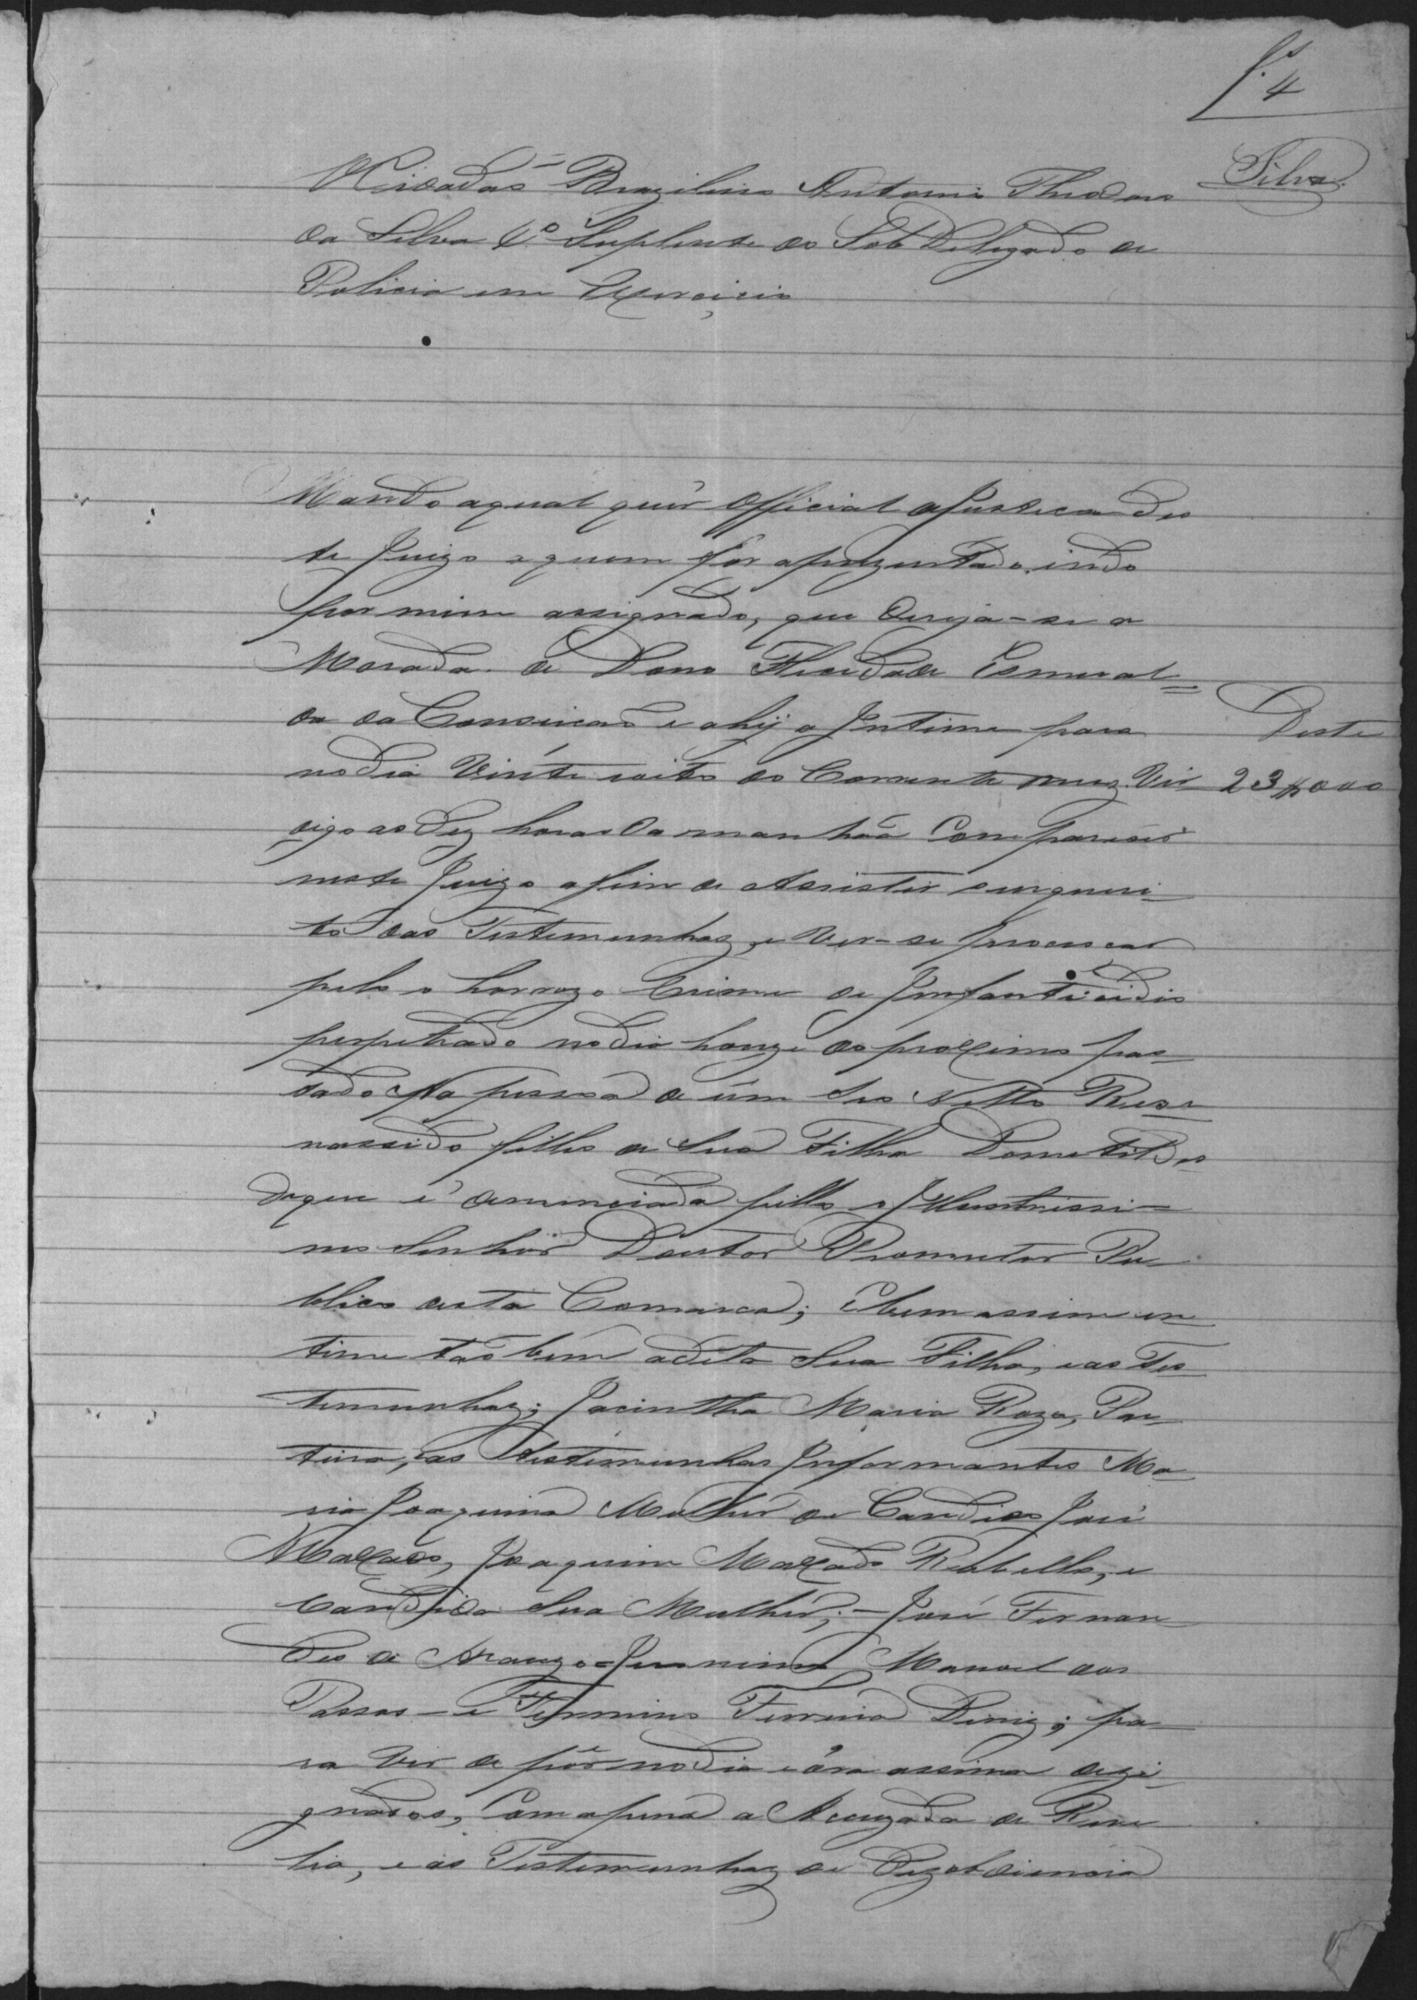 fs 4
Silva
O Cidadão Brazileiro Antonio Theodoro
da Silva 6º Suplente do Sob Delegado de
Policia em Exercicio
Mando aqual quér Official de Justica des
te Juizo a quem for aprezentado, indo
por mim assignado, que derija-se a
Morada de Dona Flicidade Esmeral=
da da Conceicaõ e ahij a Intime para
no dia Vinte i oito do Corrente mez Vir
digo as Dez horas da manhaã Comparecer
neste Juizo afim de Assistir o inqueri-
to das Testemunhaz, e Ver-se processar
pelo o horrozo Crime de Imfanticidio
perpetrado no dia honze do proximo pas-
sado Na pessoa de úm Seo Netto Ressi-
nassido filho de Sua Filha Dometildes
de que é denunciada pello o Illustrissi-
mo Senhor Doutor Promutor Pu-
blico desta Comarca; E bem assim in-
time taõ bem adita Sua Filha, e as Tes-
temunhaz; Jacintha Maria Roza, Par-
teira, as Testemunhas Informantes Ma-
ria Joaquina Mulhér de Candido José
Maxado, Joaquim Maxado Rabello, e
Candida Sua Mulhér; - José Fernan-
des de Araujo= Jeronimo Manoel dos
Passos - e Firmino Ferreira Diniz; pa-
ra Vir de pôr no dia e óra assima dezi-
gnados, Com apena a Acuzada de Reve-
lia, e as Testemunhaz de Dezobdiencia
Deste
23#000